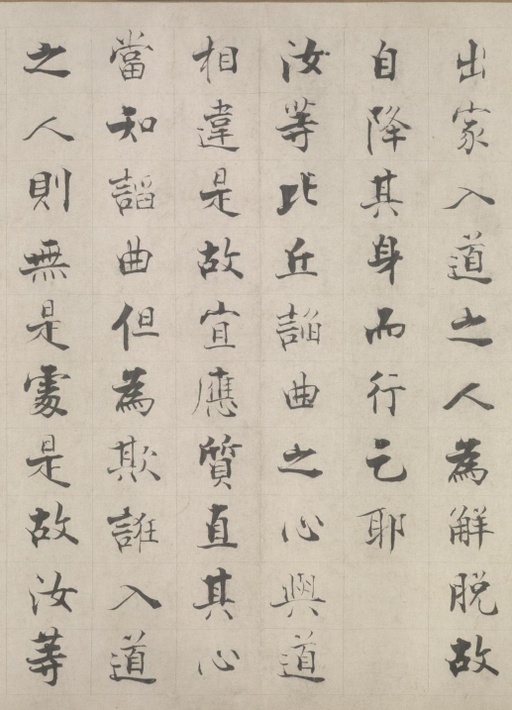 出家入道之人為解脱故
自降其身而行乞耶
汝等比丘諂曲之心與道
相違是故宜應質直其心
當知諂曲但為欺誑入道
之人則無是處是故汝等